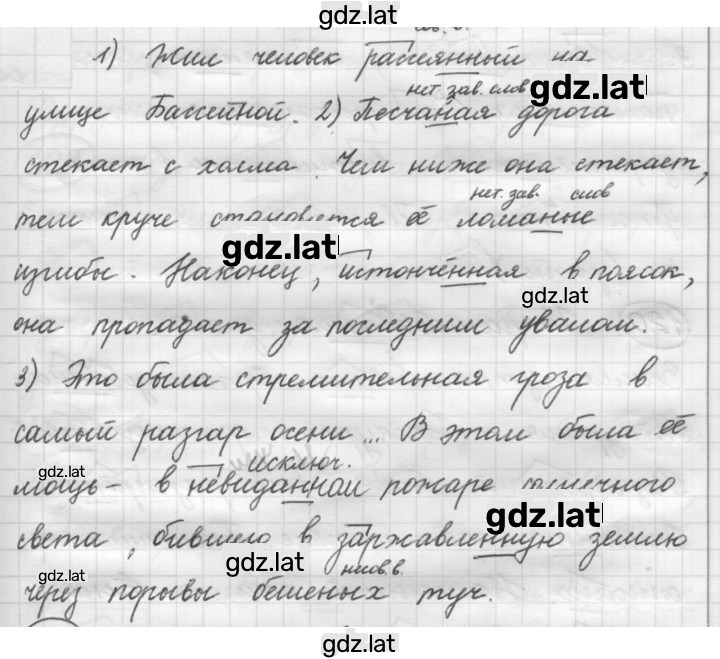 gdz.lat
1) Жил человек рассеянный на
нет зав. слов
gdz.lat
улице Бассейной. 2) Песчаная дорога
стекает с холма. Чем ниже она стекает,
нет. зав. слов
тем круче становится её ломаные
gdz.lat
изгибы. Наконец, истончённая в поясок,
gdz.lat
она пропадает за последним увалом.
3) Это была стремительная гроза в
самый разгар осени... В этом была её
gdz.lat
исключ.
мощь - в невиданном пожаре солнечного
gdz.lat
света, бившего в заржавленную землю
gdz.lat
gdz.lat
несов.в.
через порывы бешеных туч.
gdz.lat